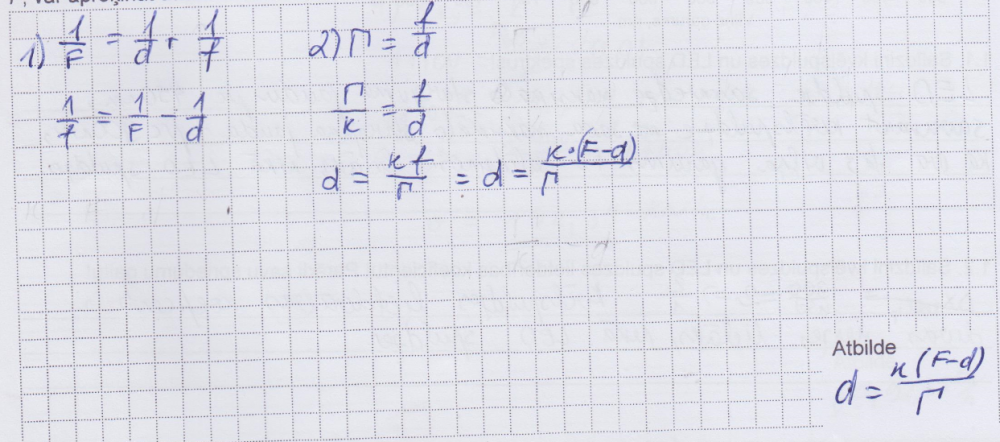 1) 1/F = 1/d + 1/f
1/f = 1/F - 1/d
2) Γ = f/d
Γ/κ = f/d
d = κf/Γ = d = κ·(F-d)/Γ
Atbilde
d = κ(F-d)/Γ